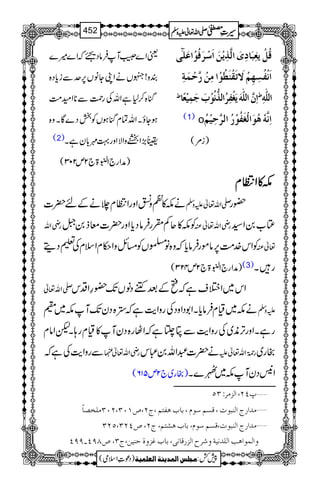 سیرت مصطفی صلی اللہ تعالیٰ علیہ وسلم 452
یعنی اے حبیب آپ فرما دیجئے کہ اے میرے
بندو! جنہوں نے اپنی جانوں پر حد سے زیادہ
گناہ کر لیا ہے اللہ کی رحمت سے ناامید مت
ہو جاؤ۔ اللہ تمام گناہوں کو بخش دے گا۔ وہ
یقیناً بڑا بخشنے والا اور بہت مہربان ہے۔(2)
(مدارج النبوۃ ج۲ ص۳۰۲)
قُلْ یٰعِبَادِیَ الَّذِیْنَ اَسْرَفُوْا عَلٰۤى
اَنْفُسِهِمْ لَا تَقْنَطُوْا مِنْ رَّحْمَةِ
اللّٰهِؕ اِنَّ اللّٰهَ یَغْفِرُ الذُّنُوْبَ جَمِیْعًاؕ
اِنَّهٗ هُوَ الْغَفُوْرُ الرَّحِیْمُ (1)
(زمر)
مکہ کا انتظام
حضور صلی اللہ تعالیٰ علیہ وسلم نے مکہ کا نظم و نسق اور انتظام چلانے کے لئے حضرت
عتاب بن اسید رضی اللہ تعالیٰ عنہ کو مکہ کا حاکم مقرر فرما دیا اور حضرت معاذ بن جبل رضی اللہ
تعالیٰ عنہ کو اس خدمت پر مامور فرمایا کہ وہ نومسلموں کو مسائل و احکام اسلام کی تعلیم دیتے
رہیں۔(3) (مدارج النبوۃ ج۲ ص۳۲۴)
اس میں اختلاف ہے کہ فتح کے بعد کتنے دنوں تک حضور اقدس صلی اللہ تعالیٰ
علیہ وسلم نے مکہ میں قیام فرمایا۔ ابو داؤد کی روایت ہے کہ سترہ دن تک آپ مکہ میں مقیم
رہے۔ اور ترمذی کی روایت سے پتا چلتا ہے کہ اٹھارہ دن آپ کا قیام رہا۔ لیکن امام
بخاری رحمۃ اللہ تعالیٰ علیہ نے حضرت عبد اللہ بن عباس رضی اللہ تعالیٰ عنہما سے روایت کی ہے کہ
انیس دن آپ مکہ میں ٹھہرے۔ (بخاری ج۲ ص۶۱۵)
پ٢٤، الزمر: ٥٣
مدارج النبوت ، قسم سوم ، باب هفتم ،ج٢،ص٣٠٢،٣٠١ملخصاً
مدارج النبوت،قسم سوم، باب هشتم، ج٢، ص٣٢٥،٣٢٤
والمواهب اللدنية وشرح الزرقانی، باب غزوة حنين،ج٣، ص٤٩٨-٤٩٩
پیش کش: مجلس المدینۃ العلمیۃ (دعوتِ اسلامی)